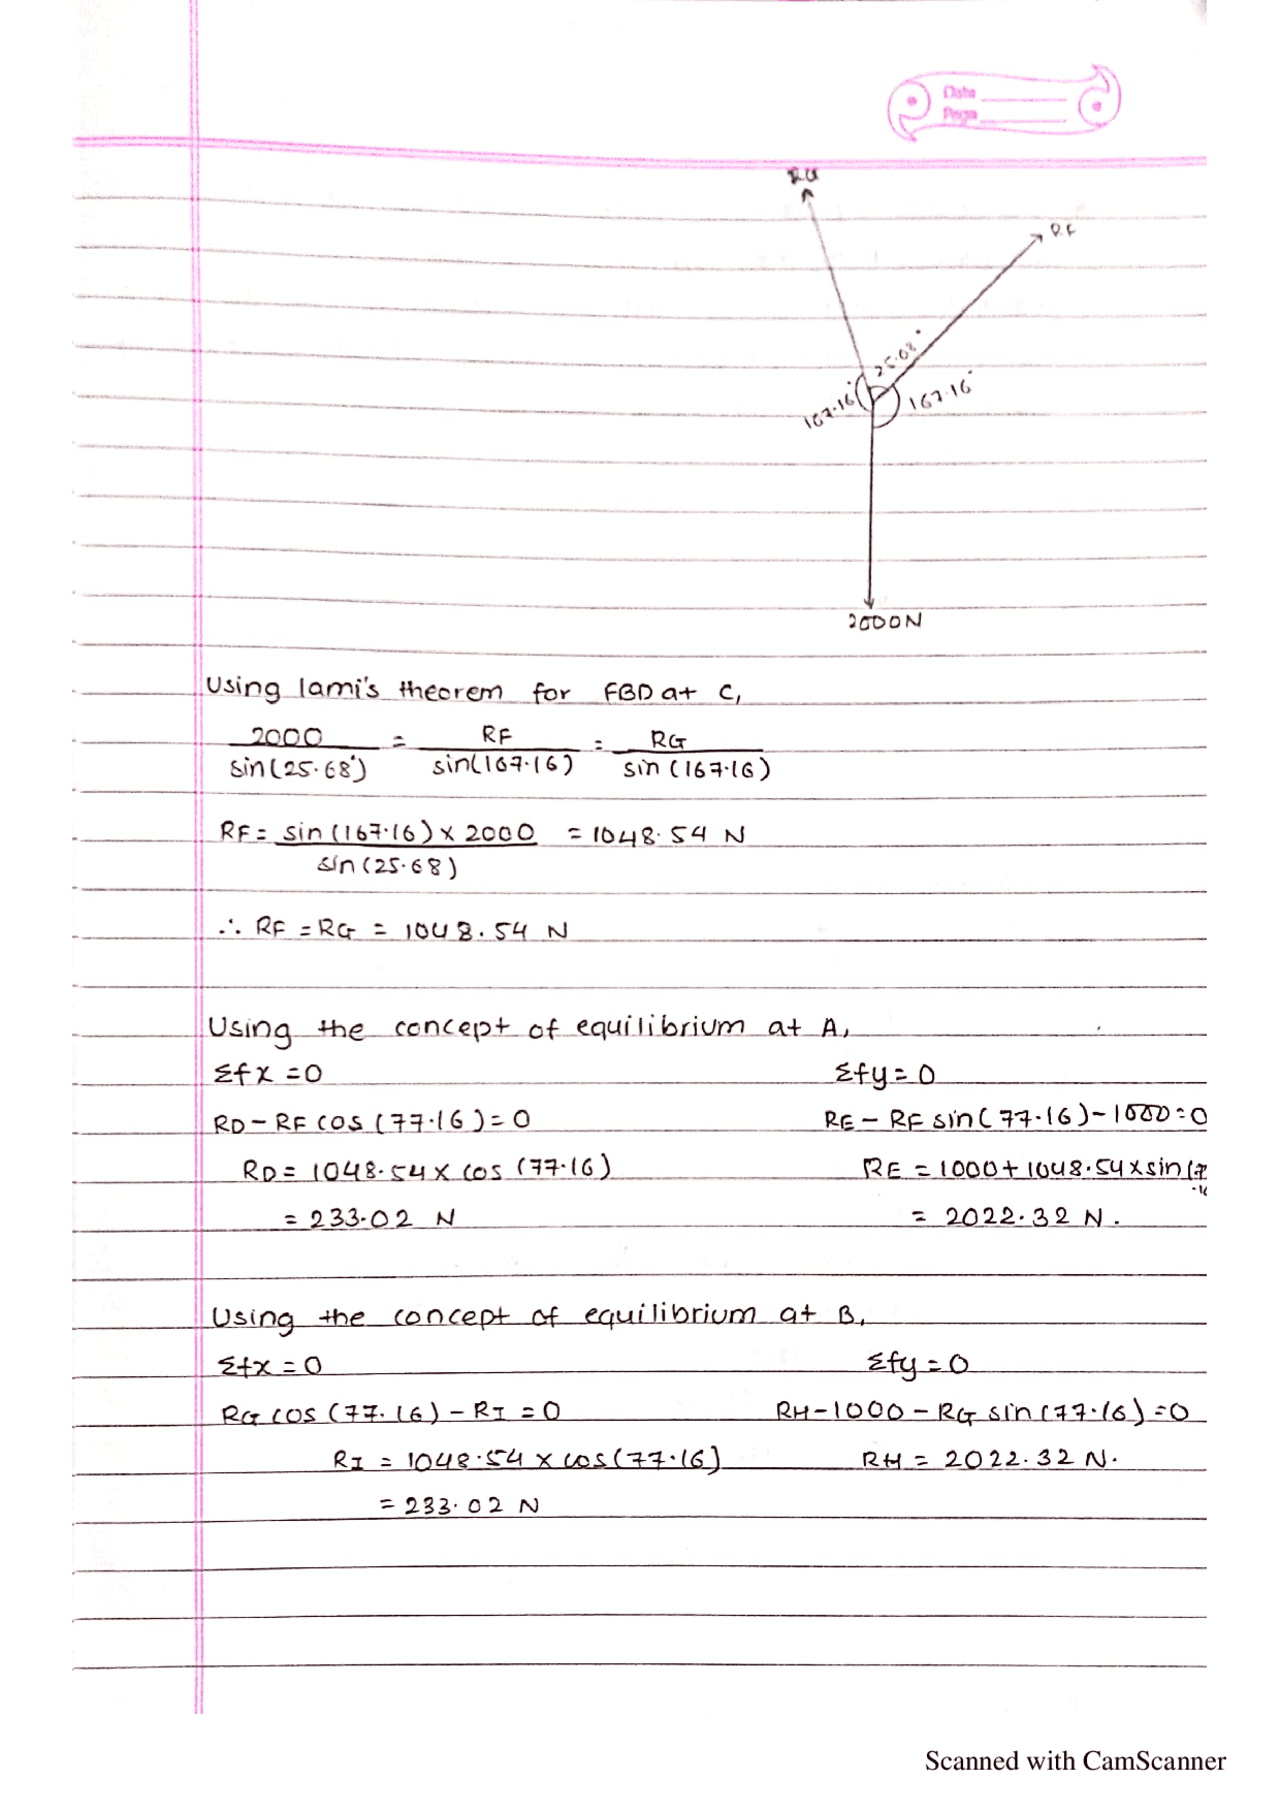 Date
Page
RG
RF
25.68°
167.16°
167.16°
2000N
Using lami's theorem for FBD at C,
2000 = RF = RG
sin(25.68°) sin(167.16) sin(167.16)
RF = sin(167.16) x 2000 = 1048.54 N
sin(25.68)
∴ RF = RG = 1048.54 N
Using the concept of equilibrium at A,
Σfx = 0 Σfy = 0
RD - RF cos (77.16) = 0 RE - RF sin(77.16) - 1000 = 0
RD = 1048.54 x cos (77.16) RE = 1000 + 1048.54 x sin(77.16
= 233.02 N = 2022.32 N.
Using the concept of equilibrium at B,
Σfx = 0 Σfy = 0
RG cos (77.16) - RI = 0 RH - 1000 - RG sin (77.16) = 0
RI = 1048.54 x cos(77.16) RH = 2022.32 N.
= 233.02 N
Scanned with CamScanner